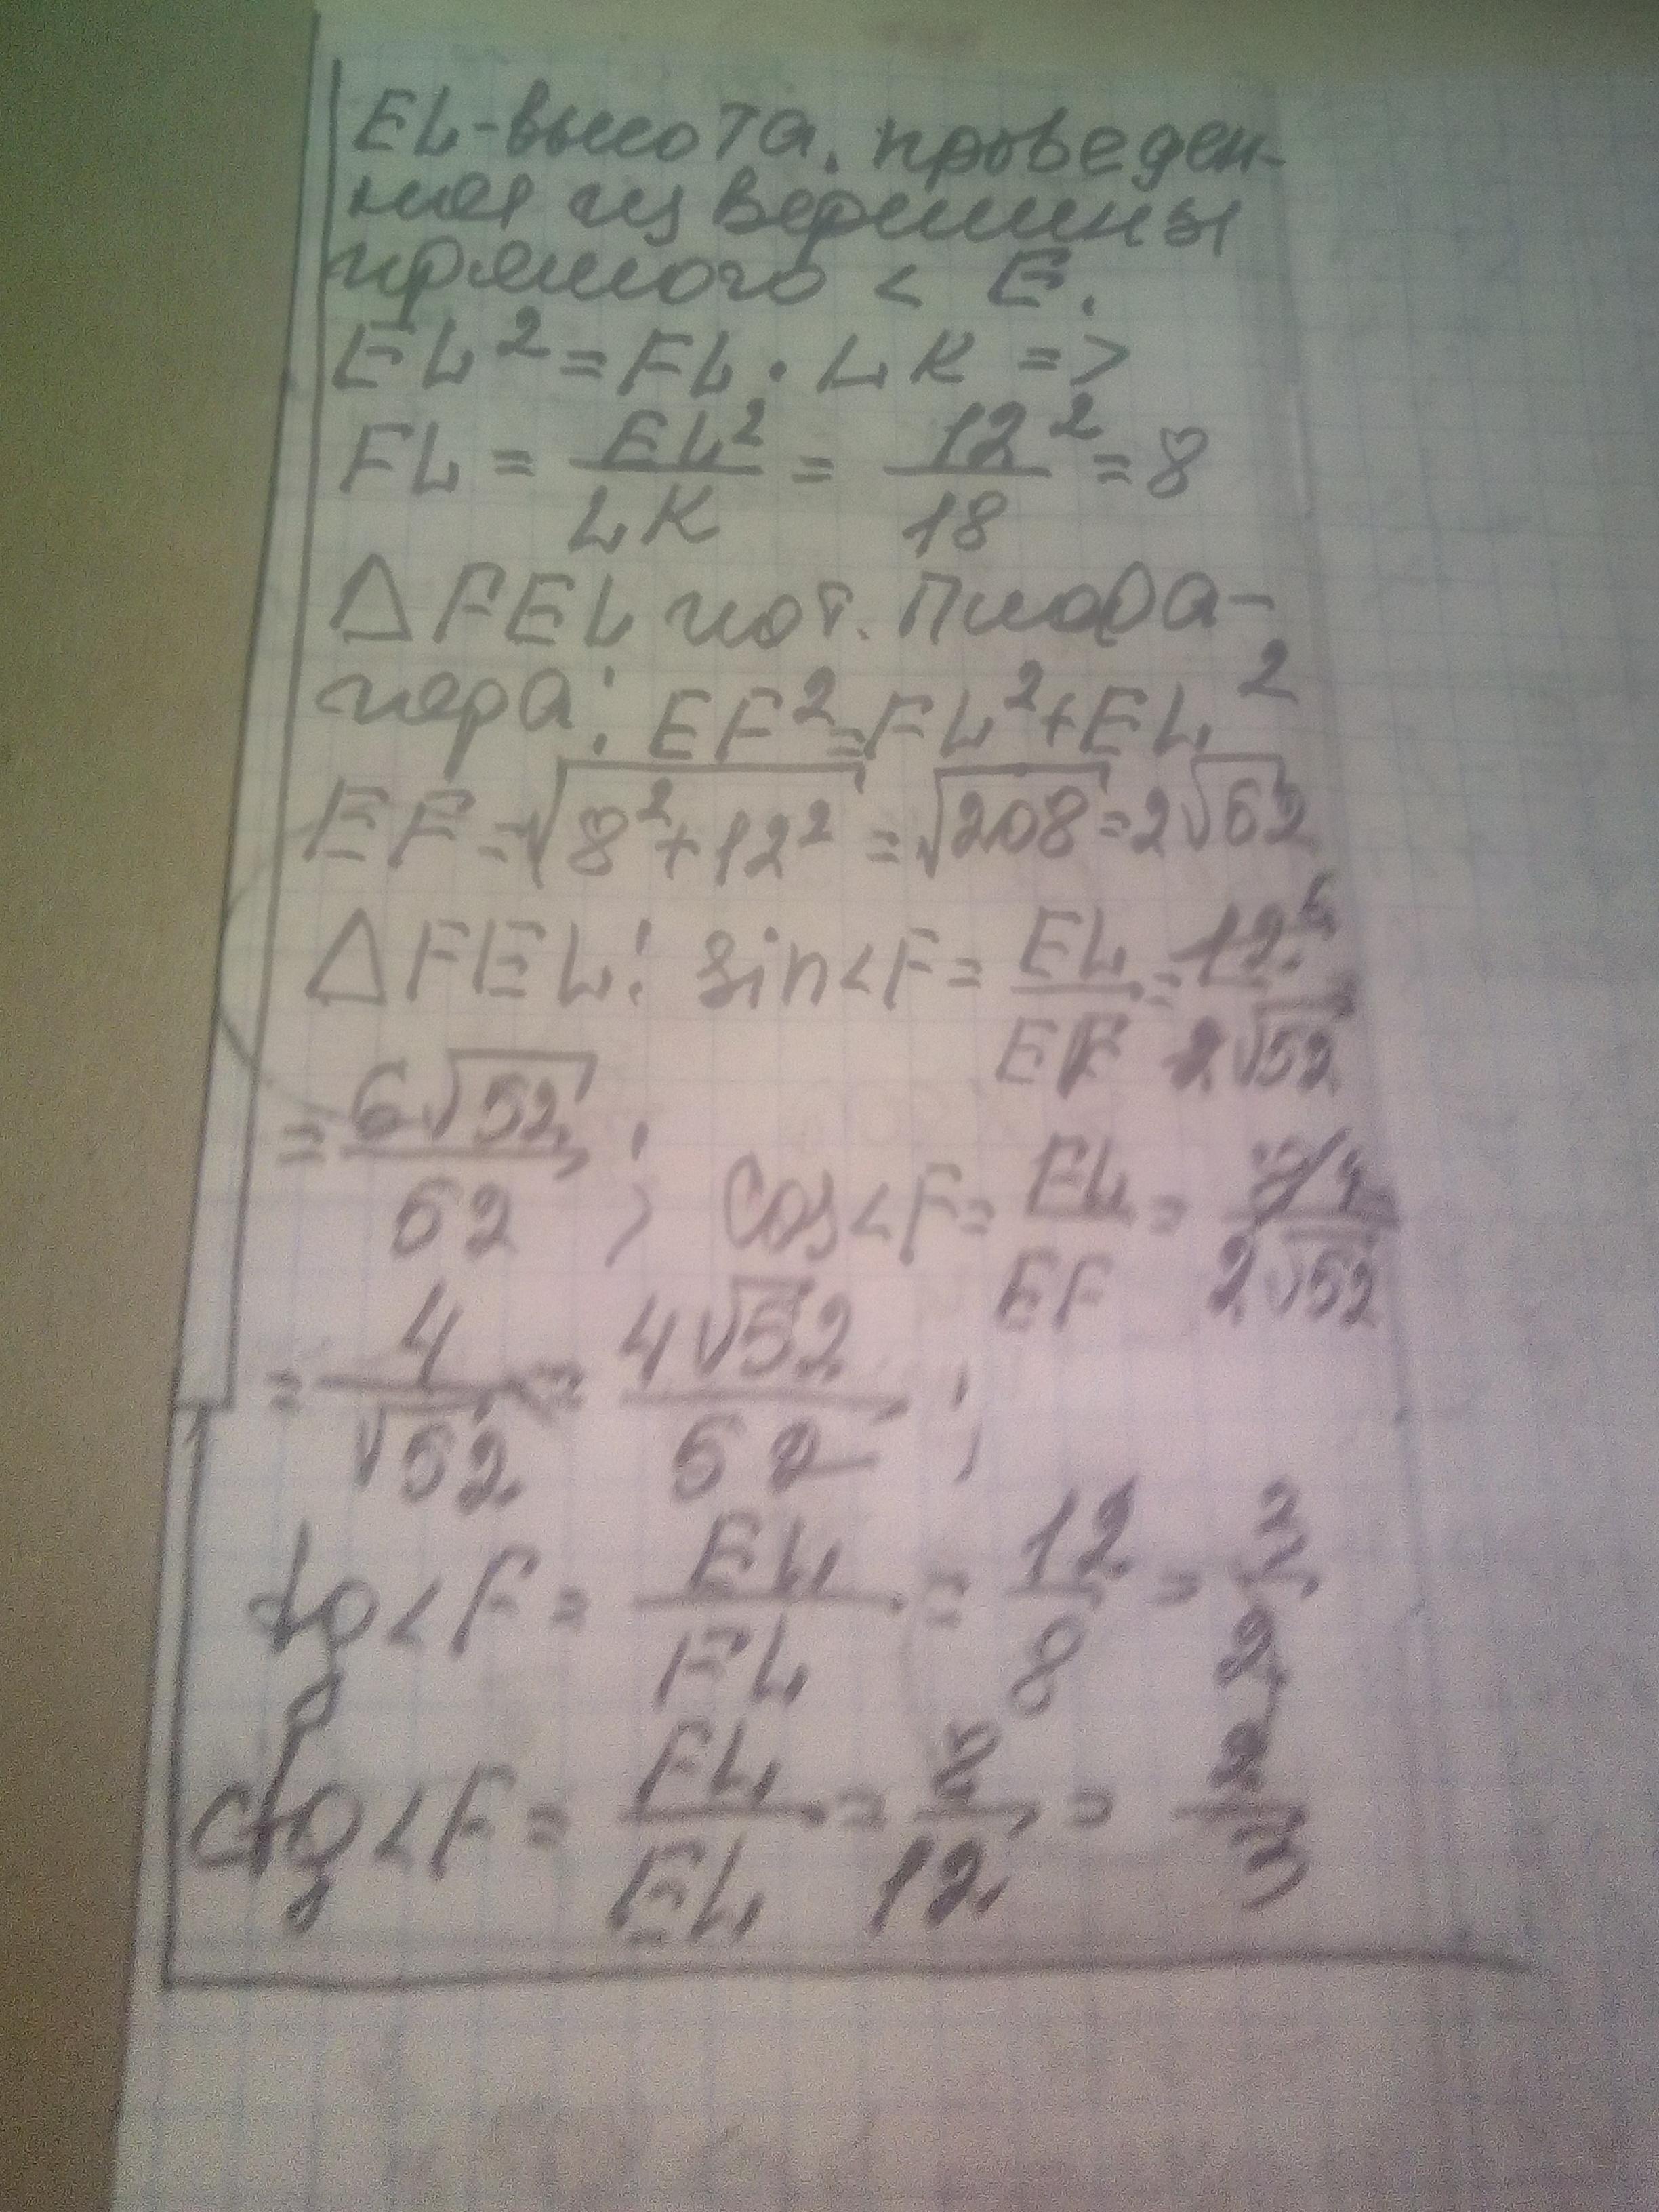 EL-высота, проведен-
ная из вершины
прямого < E.
EL² = FL · LK =>
FL = EL²/LK = 12²/18 = 8
△FEL по т. Пифа-
гора: EF² = FL² + EL²
EF = √8² + 12² = √208 = 2√52
△FEL: sin<F = EL/EF = 12 6/2√52
= 6√52/52; cos<F = EL/EF = 8 4/2√52
= 4/√52 = 4√52/52;
tg<F = EL/FL = 12/8 = 3/2
ctg<F = FL/EL = 8/12 = 2/3